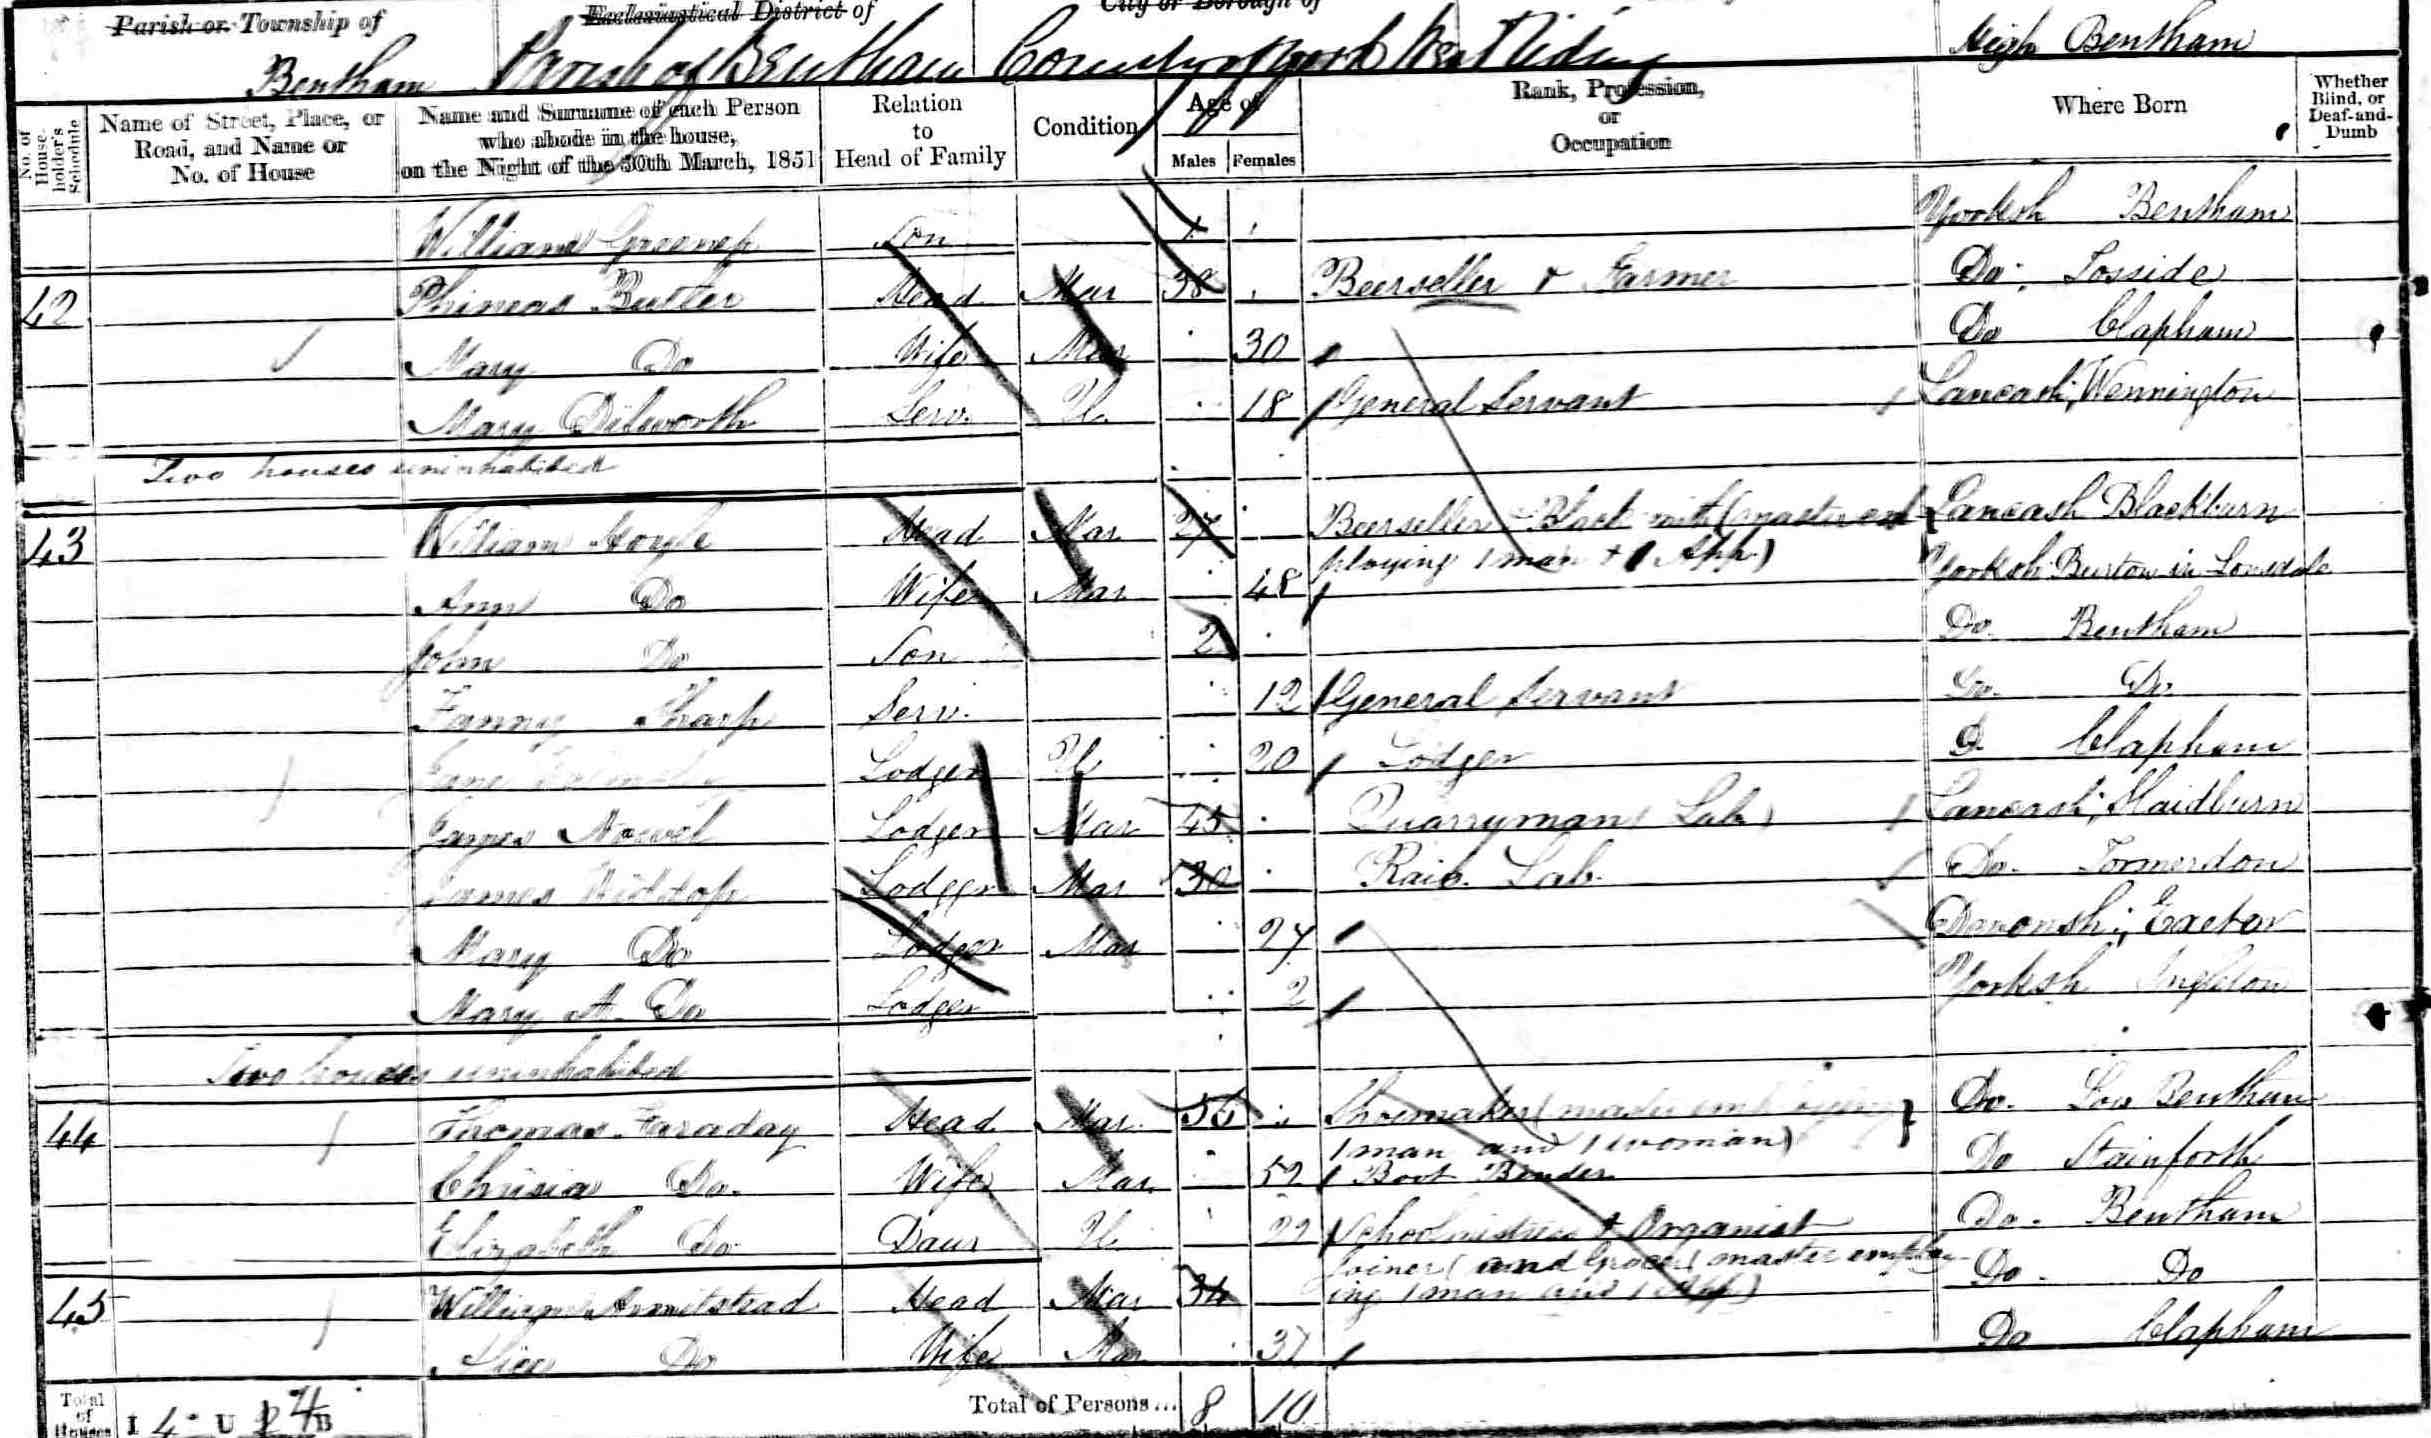 Parish or Township of Ecclesiastical District of City or Borough of
Bentham Parish of Bentham County of York West Riding High Bentham
No. of House-holder's Schedule
Name of Street, Place, or Road, and Name or No. of House
Name and Surname of each Person who abode in the house, on the Night of the 30th March, 1851
Relation to Head of Family
Condition
Age of
Males Females
Rank, Profession, or Occupation
Where Born
Whether Blind, or Deaf-and-Dumb
William Greenep Son 1 Yorksh Bentham
42 Phineas Butler Head Mar 38 Beerseller & Farmer Do. Tosside
Mary Do Wife Mar 30 Do Clapham
Mary Dilworth Serv. U. 18 General Servant Lancash; Wennington
Two houses uninhabited
43 William Hoyle Head Mar 27 Beerseller Blacksmith (master em Lancash Blackburn
ploying 1 man + 1 App)
Ann Do Wife Mar 48 Yorksh Burton in Lonsdale
John Do Son 2 Do. Bentham
Fanny Sharp Serv. 12 General Servant Do. Do.
Jane Lodger U 20 Lodger D. Clapham
James Lodger Mar 45 Quarryman Lab Lancash;
James Widdop Lodger Mar 30 Rail. Lab. Do. Tormerdon
Mary Do Lodger Mar 27 Devonsh; Exeter
Mary A Do Lodger 2 Yorksh Ingleton
Two houses uninhabited
44 Thomas Faraday Head Mar. Shoemaker (master employing Do. Low Bentham
1 man and 1 woman)
Do. Wife Mar. 52 Boot Binder Do Stainforth
Elizabeth Do Daur U. 22 Schoolmistress & Organist Do. Bentham
Joiner (and Grocer) master employ
45 William Armitstead Head Mar 34 ing 1 man and 1 App) Do. Do
Alice Do Wife Mar 37 Do Clapham
Total of Houses I 4 U 4 B Total of Persons... 8 10